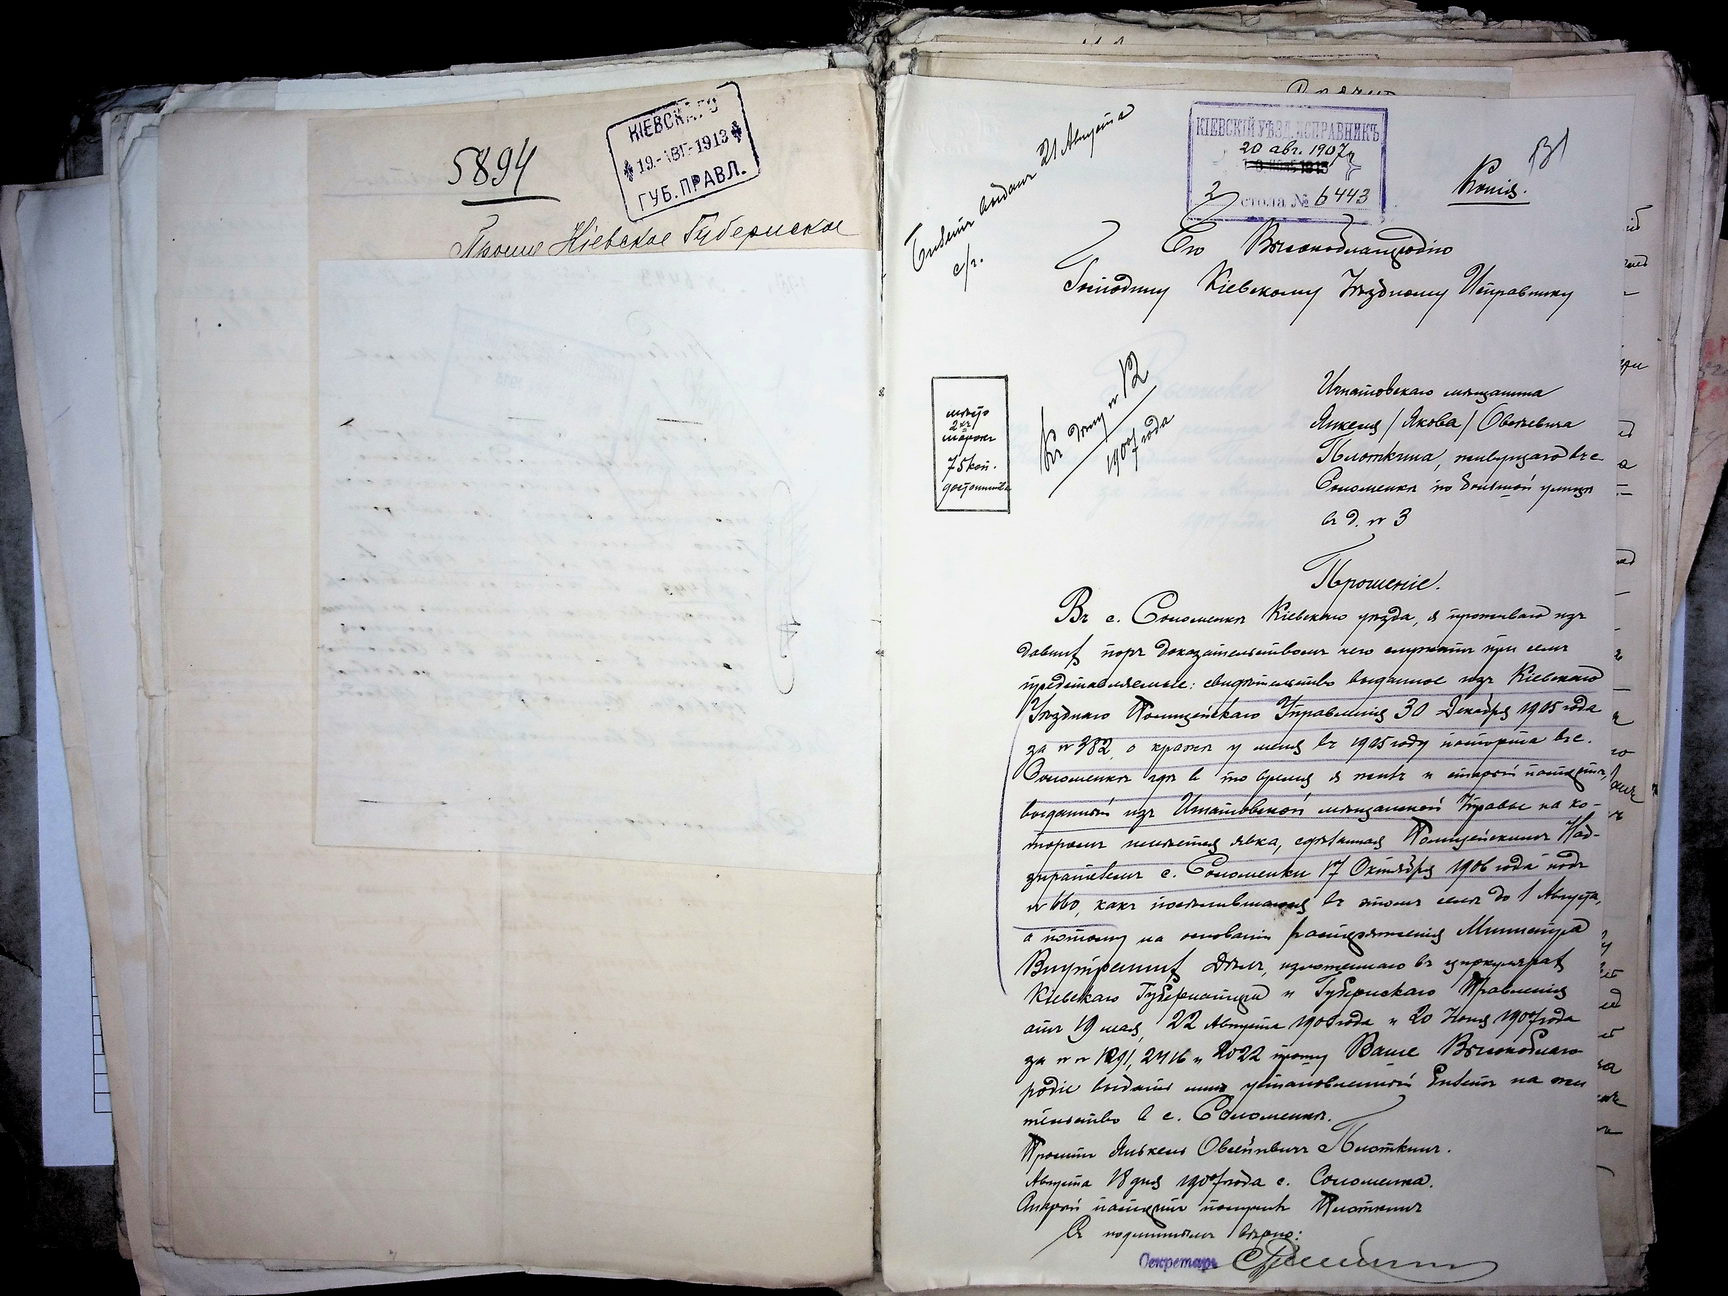 5894
КІЕВСКАГО
19.АВГ.1913
ГУБ.ПРАВЛ.
Кіевское Губернское
Билетъ выданъ 21 Августа
с/г.
КІЕВСКІЙ УѢЗД. ИСПРАВНИКЪ
20 авг. 1907 г
2 стола № 6443
131
Копія.
Его Высокоблагородію
Господину Кіевскому Уѣздному Исправнику
мѣсто
2хъ
марокъ
75 коп.
достоинства
Къ дѣлу № 12
1907 года
Игнатовскаго мѣщанина
Янкеля /Якова/ Овсѣевича
Плоткина, живущаго въ с.
Соломенкѣ по Большой улицѣ
въ д. № 3
Прошеніе.
Въ с. Соломенкѣ Кіевскаго уѣзда, я проживаю изъ
давнихъ поръ доказательствомъ чего служатъ при семъ
представляемые: свидѣтельство выданное изъ Кіевскаго
Уѣзднаго Полицейскаго Управленія 30 Декабря 1905 года
за № 982, о кражѣ у меня въ 1905 году паспорта въ с.
Соломенкѣ гдѣ въ то время я жилъ и старый паспортъ,
выданный изъ Игнатовской мѣщанской Управы на ко-
торомъ имѣется явка, сдѣланная Полицейскимъ Над-
зирателемъ с. Соломенки 17 Октября 1906 года подъ
№ 660, какъ поселившагося въ этомъ селѣ до 1 Августа,
а потому на основаніи распоряженія Министра
Внутреннихъ Дѣлъ, изложеннаго въ циркулярахъ
Кіевскаго Губернатора и Губернскаго Правленія
отъ 19 мая, 22 Августа года и 20 Іюня 1907 года
за № № 1291, 2416 и 2022 прошу Ваше Высокоблаго-
родіе выдать мнѣ установленный билетъ на жи-
тельство въ с. Соломенкѣ.
Проситъ Янкель Овсѣевичъ Плоткинъ.
Августа 18 дня 1907 года с. Соломенка.
паспортъ получилъ Плоткинъ
Съ подлиннымъ вѣрно:
Секретарь